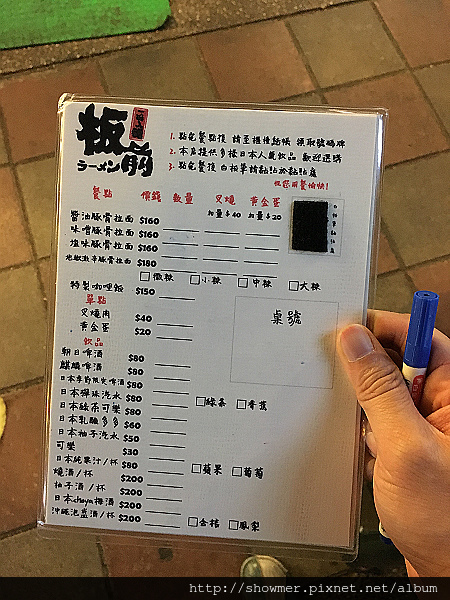 板前
ラーメン
1. 點完餐點後 請至櫃檯結帳 領取號碼牌
2. 本店提供多樣日本人氣飲品 歡迎選購
3. 點完餐後 白板筆請黏於黏貼處
祝您用餐愉快!
餐點 價錢 數量 叉燒 黃金蛋
加量$40 加量$20
醬油豚骨拉面 $160
味噌豚骨拉面 $160
塩味豚骨拉面 $160
地獄激辛豚骨拉面 $180
□微辣 □小辣 □中辣 □大辣
特製咖哩飯 $150
桌號
單點
叉燒肉 $40
黃金蛋 $20
飲品
朝日啤酒 $80
麒麟啤酒 $80
日本季節限定啤酒 $80
日本彈珠汽水 $80
日本綠茶可樂 $80 □綠茶 □香蕉
日本乳酸多多 $60
日本柚子汽水 $50
可樂 $30
日本純果汁/杯 $80 □蘋果 □葡萄
燒酒/杯 $200
柚子酒/杯 $200
日本choya梅酒 $200
沖繩泡盛酒/杯 $200 □金桔 □鳳梨
http://showmer.pixnet.net/album